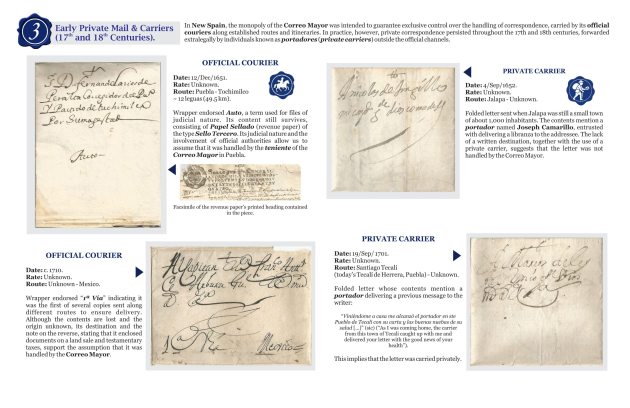 3
Early Private Mail & Carriers
(17th and 18th Centuries).
In New Spain, the monopoly of the Correo Mayor was intended to guarantee exclusive control over the handling of correspondence, carried by its official
couriers along established routes and itineraries. In practice, however, private correspondence persisted throughout the 17th and 18th centuries, forwarded
extralegally by individuals known as portadores (private carriers) outside the official channels.
OFFICIAL COURIER
Date: 12/Dec/1651.
Rate: Unknown.
Route: Puebla - Tochimilco
– 12 leguas (49.5 km).
Wrapper endorsed Auto, a term used for files of
judicial nature. Its content still survives,
consisting of Papel Sellado (revenue paper) of
the type Sello Tercero. Its judicial nature and the
involvement of official authorities allow us to
assume that it was handled by the teniente of the
Correo Mayor in Puebla.
Facsimile of the revenue paper's printed heading contained
in the piece.
PRIVATE CARRIER
Date: 4/Sep/1652.
Rate: Unknown.
Route: Jalapa - Unknown.
Folded letter sent when Jalapa was still a small town
of about 1,000 inhabitants. The contents mention a
portador named Joseph Camarillo, entrusted
with delivering a libranza to the addressee. The lack
of a written destination, together with the use of a
private carrier, suggests that the letter was not
handled by the Correo Mayor.
OFFICIAL COURIER
Date: c. 1710.
Rate: Unknown.
Route: Unknown - Mexico.
Wrapper endorsed "1ª Vía" indicating it
was the first of several copies sent along
different routes to ensure delivery.
Although the contents are lost and the
origin unknown, its destination and the
note on the reverse, stating that it enclosed
documents on a land sale and testamentary
taxes, support the assumption that it was
handled by the Correo Mayor.
Mexico
PRIVATE CARRIER
Date: 19/Sep/1701.
Rate: Unknown.
Route: Santiago Tecali
(today's Tecali de Herrera, Puebla) - Unknown.
Folded letter whose contents mention a
portador delivering a previous message to the
writer:
"Viniéndome a casa me alcanzó el portador en ste
Pueblo de Tecali con su carta y las buenas nuebas de su
salud [...]" (sic) ("As I was coming home, the carrier
from this town of Tecali caught up with me and
delivered your letter with the good news of your
health").
This implies that the letter was carried privately.